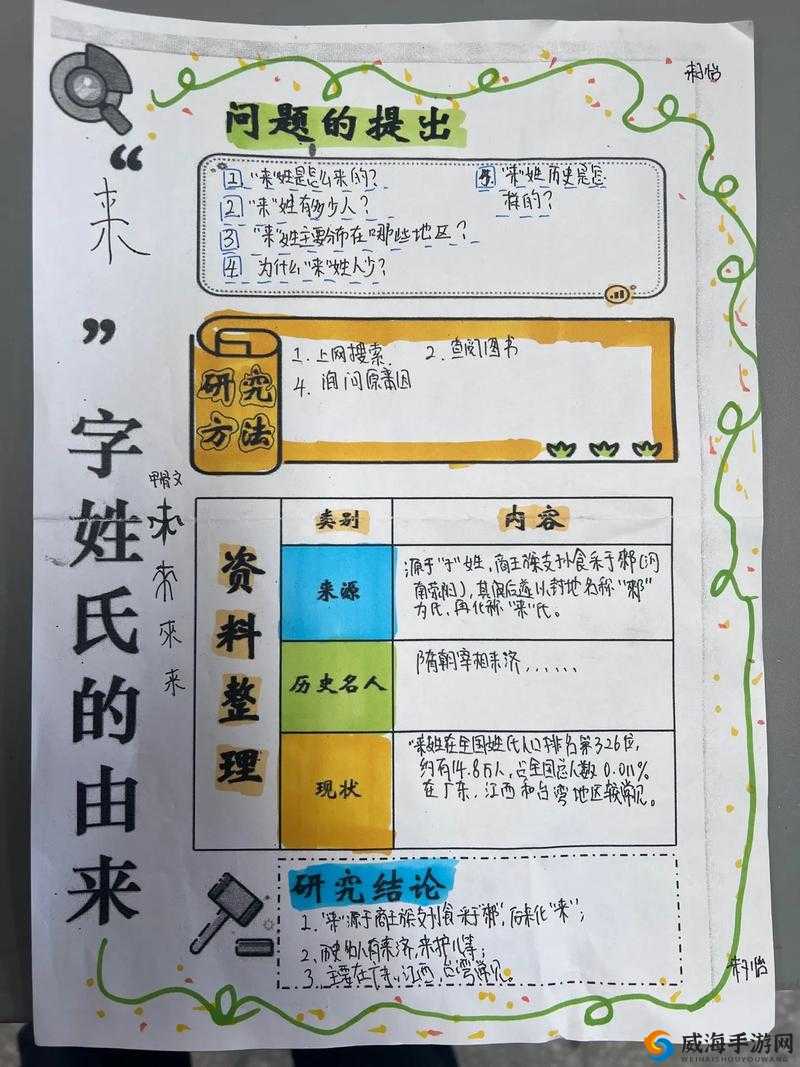 问题的提出
1 "来"姓是怎么来的?
2 "来"姓有多少人?
3 "来"姓主要分布在哪些地区?
4 为什么"来"姓人少?
5. "来"姓历史是怎样的?
"来"字姓氏的由来
甲骨文
来
研究方法
1. 上网搜索
2. 查阅图书
4. 询问原因
资料整理
类别
内容
来源
源于"子"姓,商王族支孙食采于郲(河
南荥阳),其
后遂以封地名称"郲"
为氏,再化称"来"氏。
历史名人
隋朝宰相来济......
现状
"来姓在全国姓氏人口排名第326位,
约有14.8万人,占全国总人数0.011%
在广东、江西和台湾地区较常见。
研究结论
1. "来"源于商王族支孙食采于"郲",后来化"来";
2. 历史名人有来济,来护儿等;
3. 主要在广东、江西、台湾常见。
威海手游网
WEIHAISHOUYOUWANG